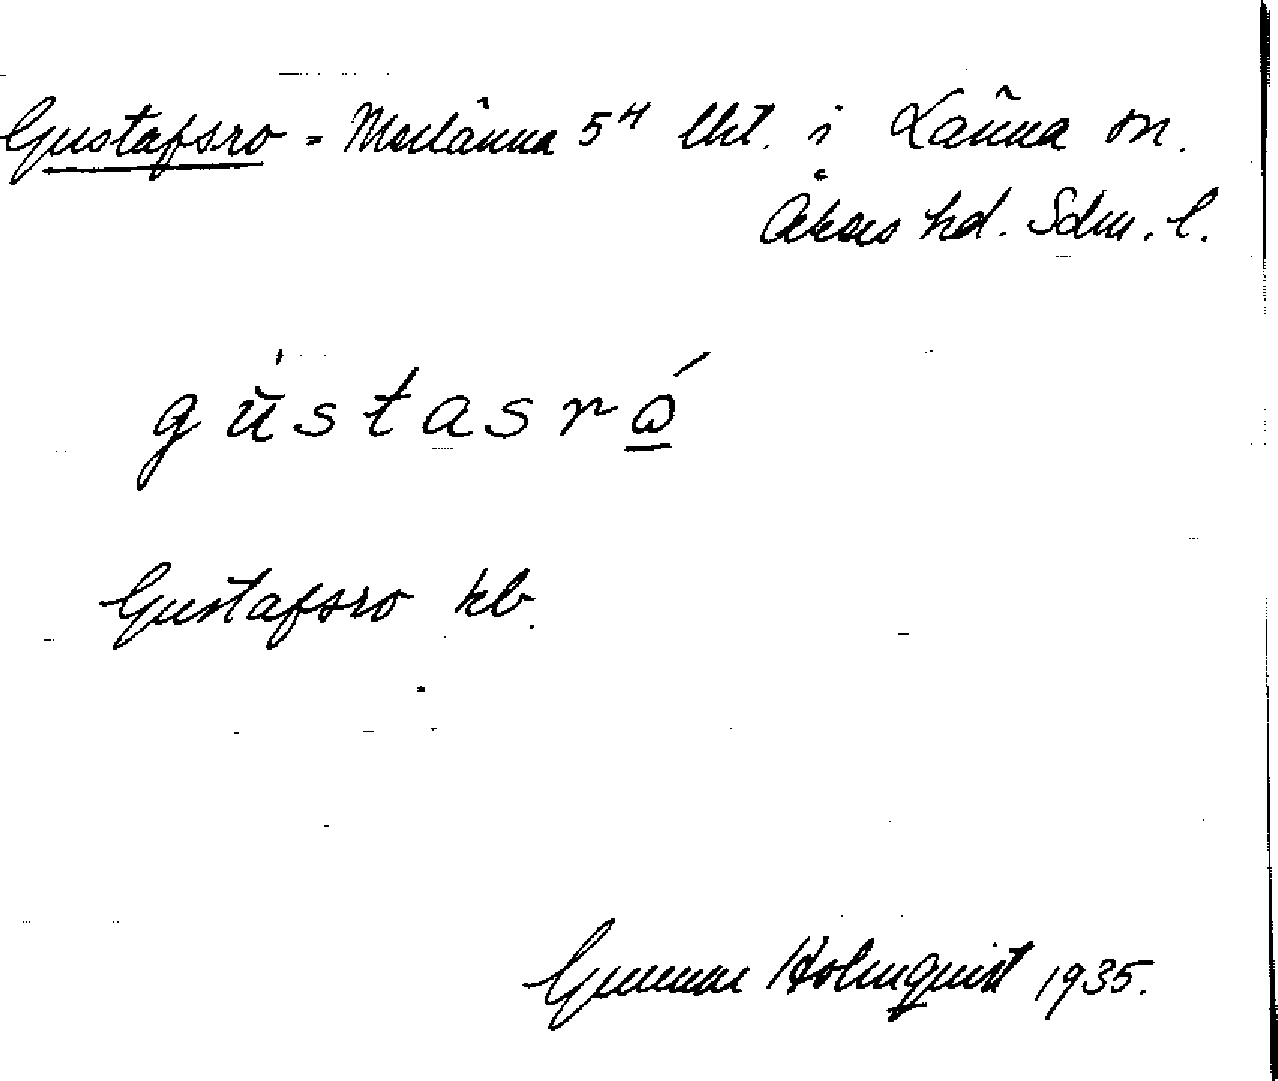 Gustafsro = Merlänna 5⁴ Utt. i Länna sn.
Åkers hd. Sdm. l.
gustasró
Gustafsro kb.
Gunnar Holmquist 1935.